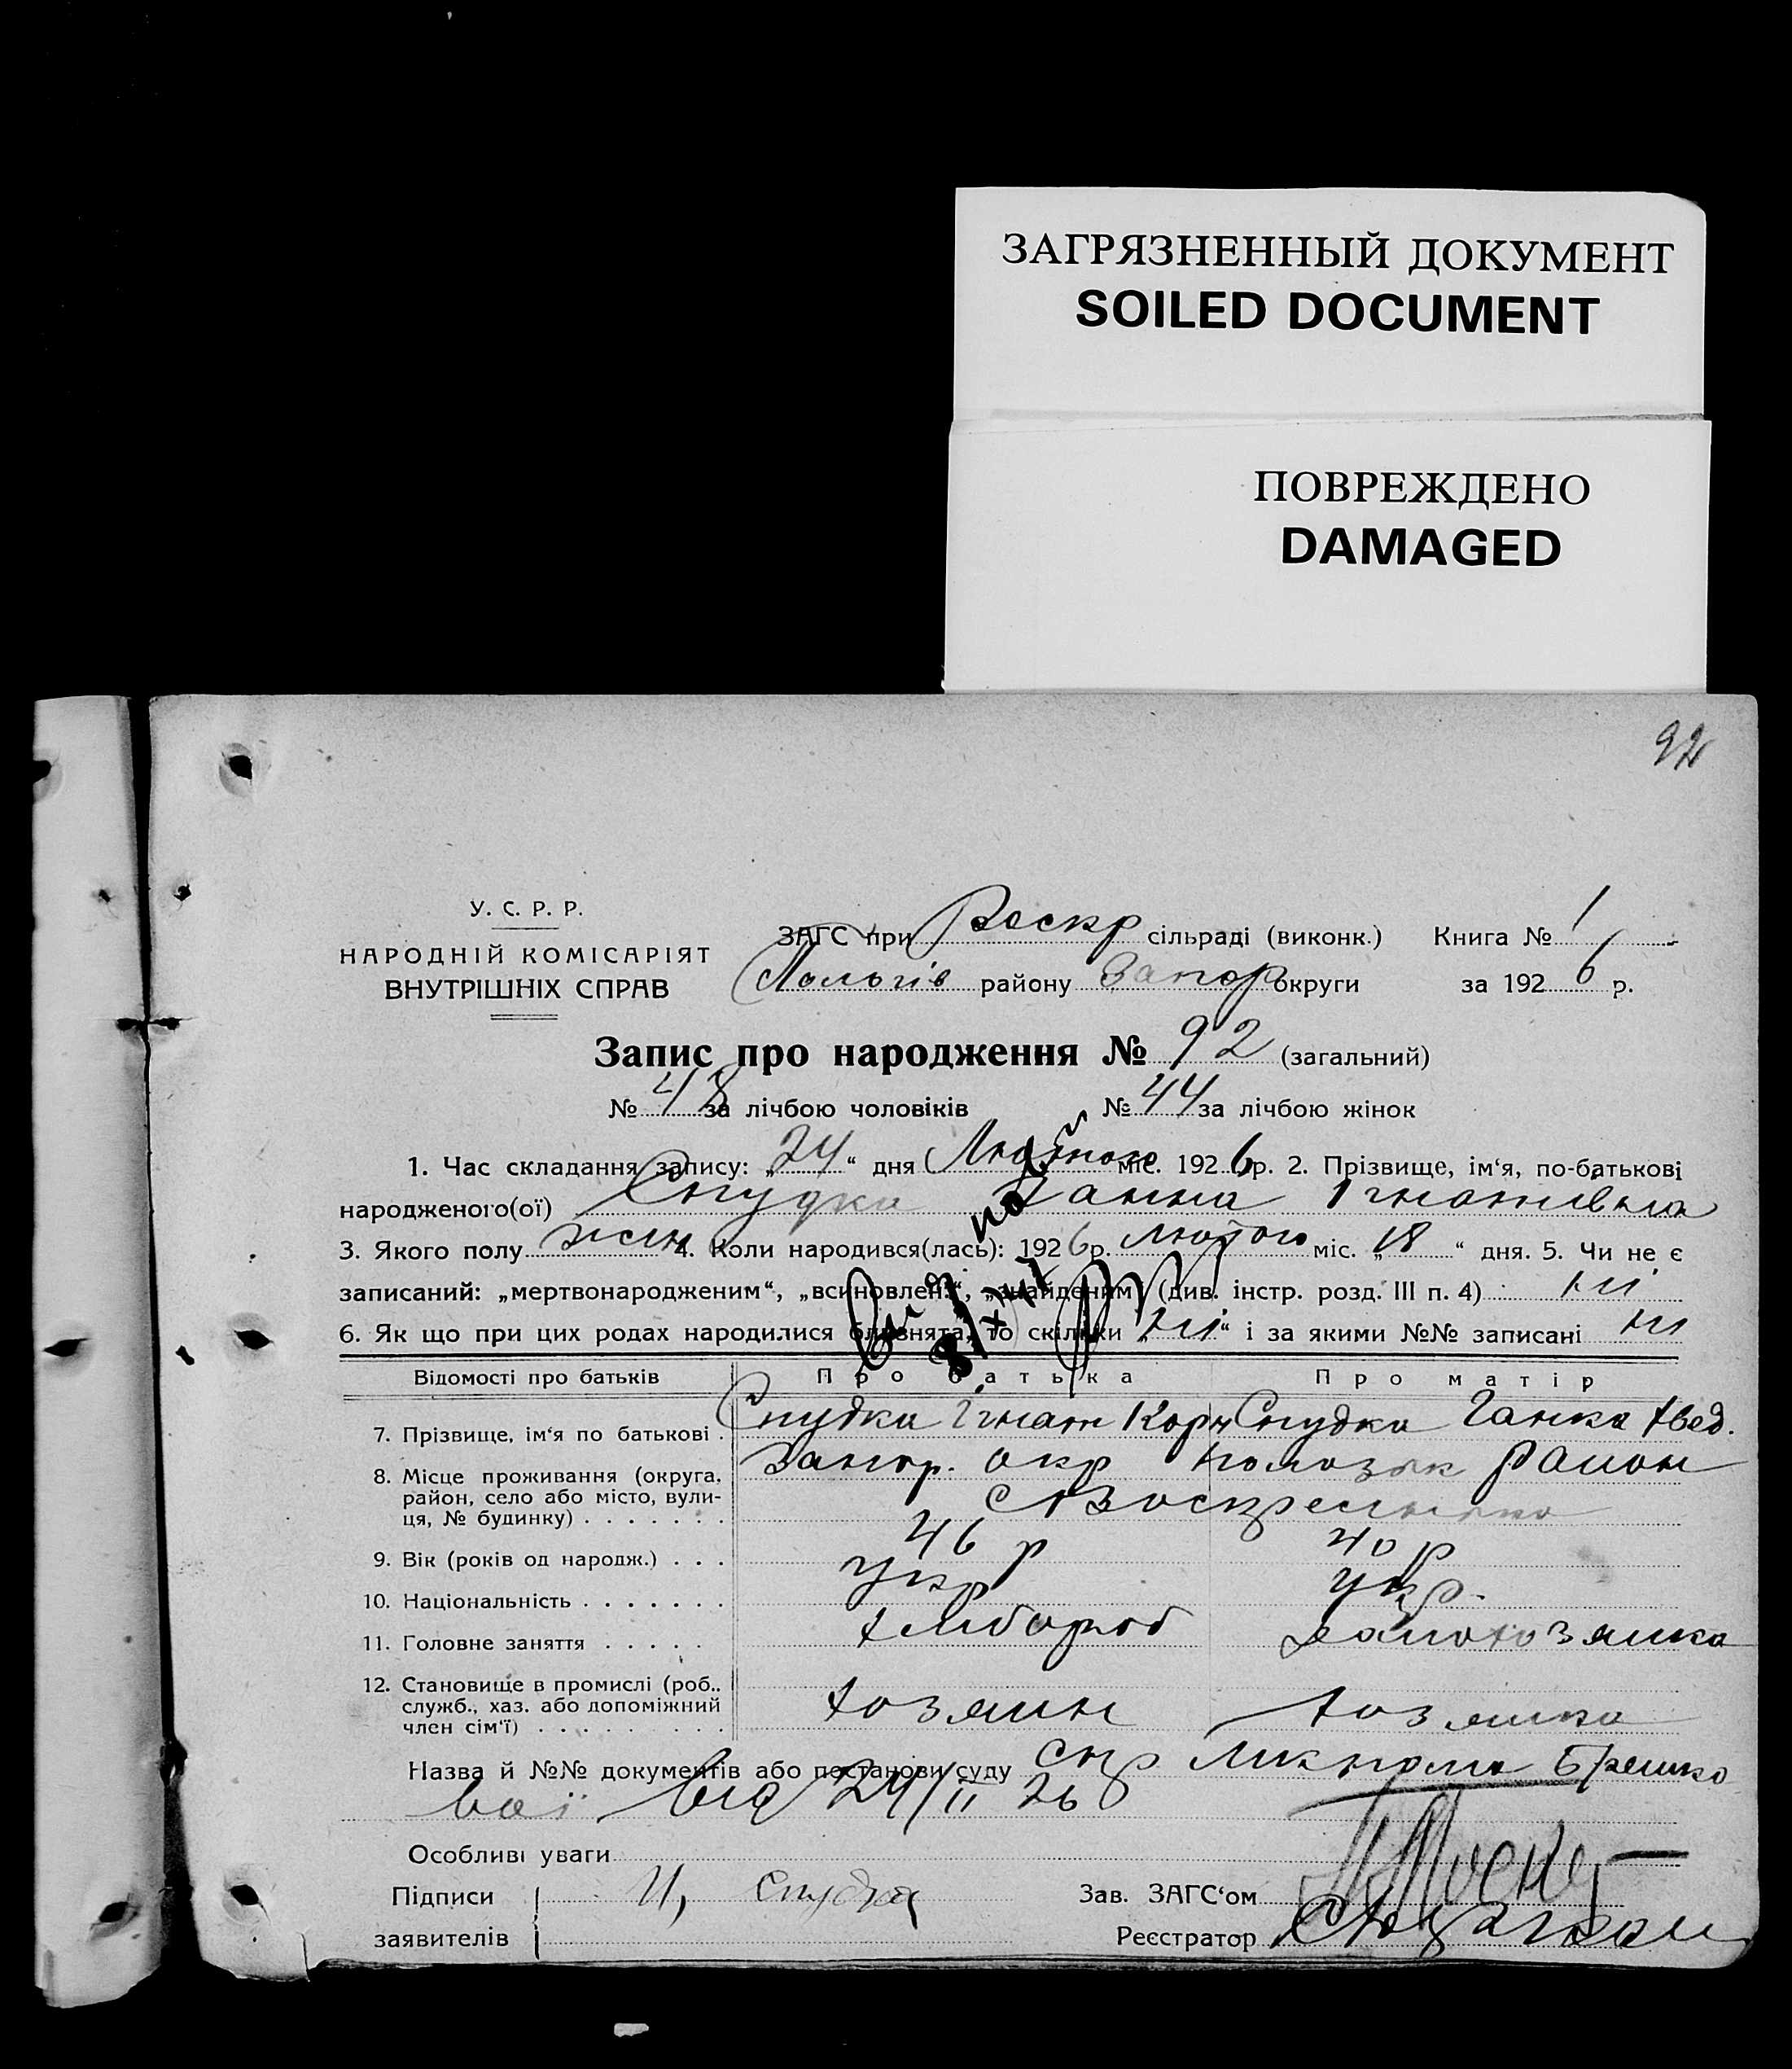 ЗАГРЯЗНЕННЫЙ ДОКУМЕНТ
SOILED DOCUMENT
ПОВРЕЖДЕНО
DAMAGED
92
У. С. Р. Р.
НАРОДНІЙ КОМІСАРІЯТ
ВНУТРІШНІХ СПРАВ
ЗАГС при Воскр сільраді (виконк.) Книга № 1
району Запор округи за 1926 р.
Запис про народження № 92 (загальний)
№ 48 за лічбою чоловіків № 44 за лічбою жінок
1. Час складання запису: „24“ дня Лютого міс. 1926 р. 2. Прізвище, ім‘я, по-батькові
народженого(ої) Спудка Ганна Ігнатівна
3. Якого полу жін 4. Коли народився(лась): 1926 р. лютого міс. „18“ дня. 5. Чи не є
записаний: „мертвонародженим“, „всиновлен.“, „знайденим“ (див. інстр. розд. III п. 4) ні
6. Як що при цих родах народилися близнята, то скільки „ні“ і за якими №№ записані ні
Відомості про батьків Про батька Про матір
7. Прізвище, ім‘я по батькові . Спудка Ігнат Корн Спудка Ганка Хвед.
8. Місце проживання (округа, район, село або місто, вулиця, № будинку) . . . . . . . Запор. окр район
9. Вік (років од народж.) . . . 46 р 40 р
10. Національність . . . . . . . укр укр.
11. Головне заняття . . . . . хлібороб
12. Становище в промислі (роб., служб., хаз. або допоміжний член сім‘ї) . . . . . . . . . хозяин хозяйка
Назва й №№ документів або постанови суду
від 24/II 26
Особливі уваги
Підписи
заявителів
И, Спудка
Зав. ЗАГС‘ом
Реєстратор